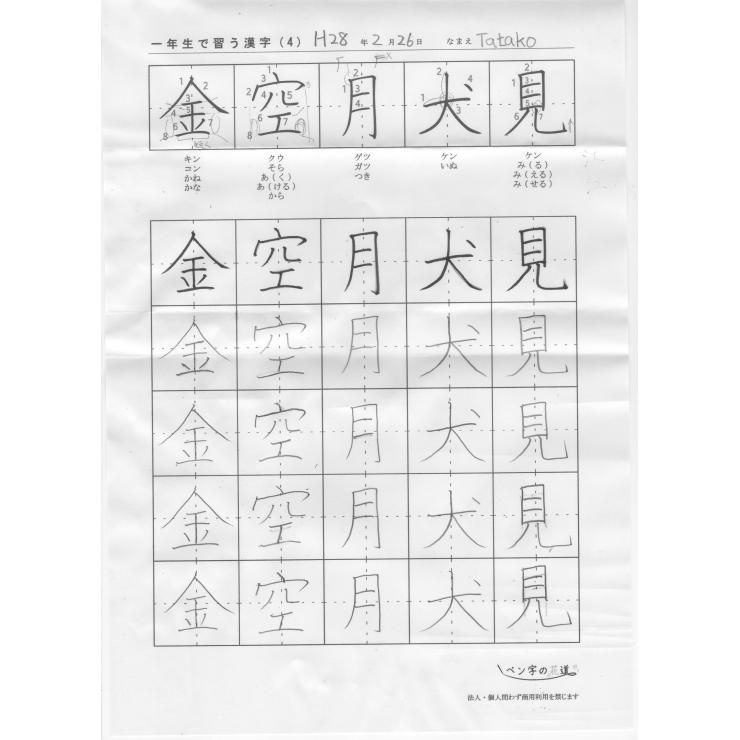 一年生で習う漢字(4) H28 年 2 月 26 日 なまえ Tatako
金 空 月 犬 見
キン クウ ゲツ ケン ケン
コン そら ガツ いぬ み(る)
かね あ(く) つき み(える)
かな あ(ける) み(せる)
から
金 空 月 犬 見
金 空 月 犬 見
金 空 月 犬 見
金 空 月 犬 見
金 空 月 犬 見
ペン字の花道
法人・個人問わず商用利用を禁じます